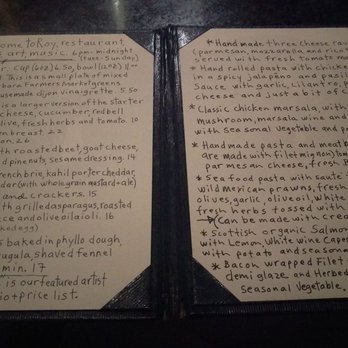 ome to Roy, restaurant,
art, music. 6pm-midnight
(Tues-Sunday)
cup (6oz) 6.50, bowl (12oz) 11.00
This is a small plate of mixed
bara Farmers Market greens
usemade dijon vinaigrette. 5.50
is a larger version of the starter
cheese, cucumber, red bell
live, fresh herbs and tomato. 10
en breast. 22
on. 26
th roasted beet, goat cheese,
d pine nuts, sesame dressing. 14
french brie, kahil porter cheddar,
dar (with whole grain mustard + ale)
and crackers. 15
th grilled asparagus, roasted
ce and olive oil aioli. 16
ked egg)
s baked in phyllo dough,
ugula, shaved fennel
min. 17
is our featured artist
io + price list.
* Hand made three cheese rav
(parmesan, mozzarella and ric
served with fresh tomato
* Hand rolled pasta with chicken
in a spicy jalapeño and pasil
sauce with garlic, lilac vine,
cheese and just a taste of
* Classic chicken marsala, with
mushroom, marsala wine and
with seasonal vegetable and po
* Handmade pasta and meat b
are made with filet mignon) tom
parmesan cheese, fresh
* Sea food pasta with saute
wild Mexican prawns, fresh
olives, garlic, olive oil, white
fresh herbs tossed with
Can be made with crea
* Scottish organic Salmo
with Lemon, White wine Caper
with potato and seasona
* Bacon wrapped Filet
demi glaze and Herbed
seasonal vegetable.